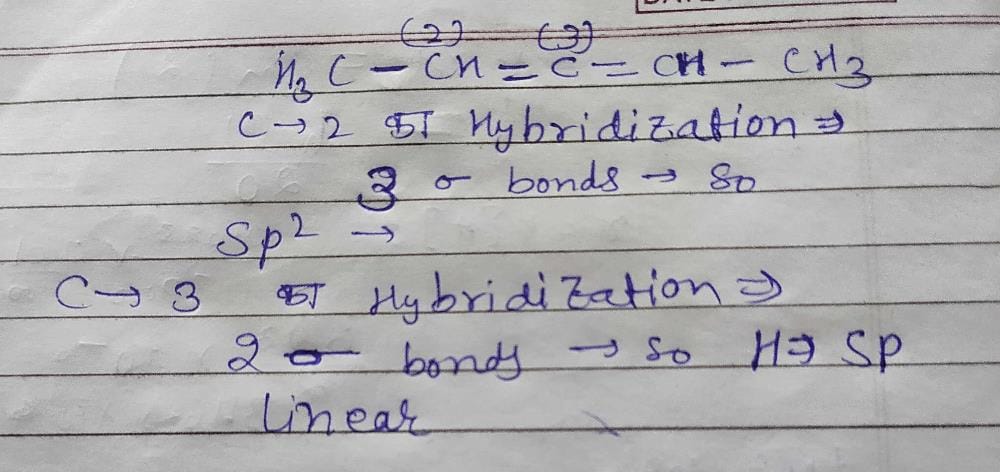 (2) (3)
H₃C – CH = C = CH – CH3
C → 2 का Hybridization ⇒
3 σ bonds → So
Sp² →
C → 3 का Hybridization ⇒
2 σ bonds → so H ⇒ SP
Linear